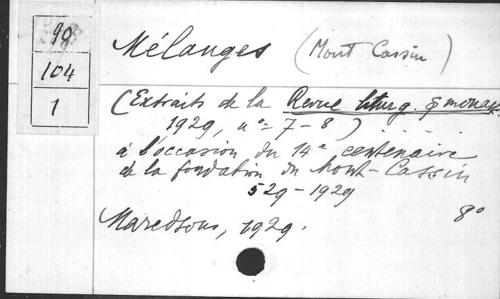 99
104
1
Mélanges (Mont Cassin)
(Extraits de la Revue liturg. & monas.
1929, nº= 7-8) . . .
à l'occasion du 14e centenaire
de la fondation du Mont-Cassin
529-1929
Maredsous, 1929. 8º